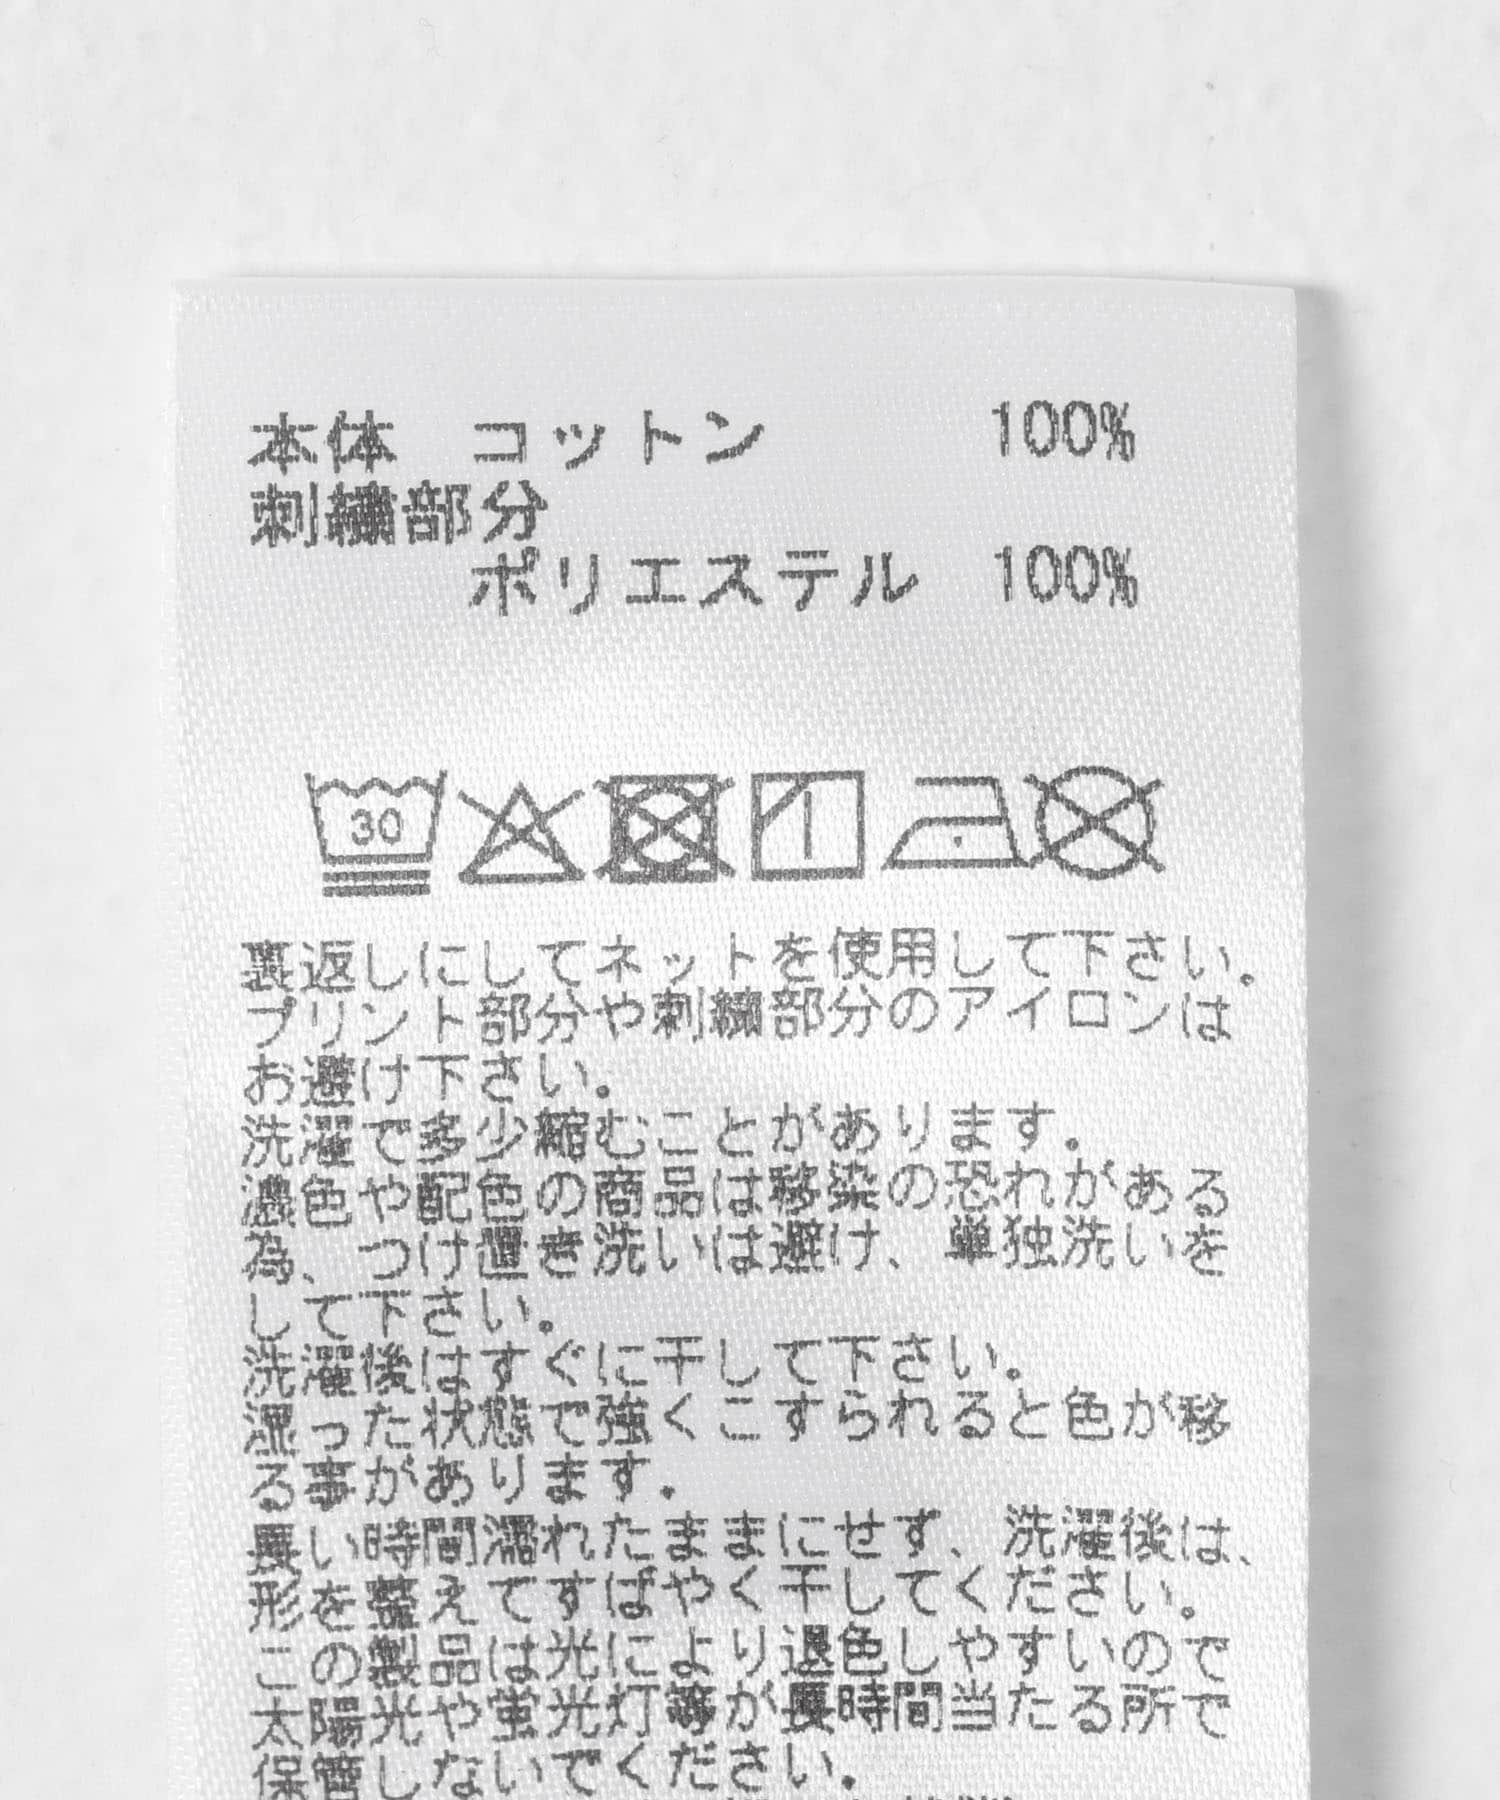 本体 コットン 100%
刺繍部分
ポリエステル 100%
30
裏返しにしてネットを使用して下さい。
プリント部分や刺繍部分のアイロンは
お避け下さい。
洗濯で多少縮むことがあります。
濃色や配色の商品は移染の恐れがある
為、つけ置き洗いは避け、単独洗いを
して下さい。
洗濯後はすぐに干して下さい。
湿った状態で強くこすられると色が移
る事があります。
長い時間濡れたままにせず、洗濯後は、
形を整えてすばやく干してください。
この製品は光により退色しやすいので
太陽光や蛍光灯等が長時間当たる所で
保管しないでください。